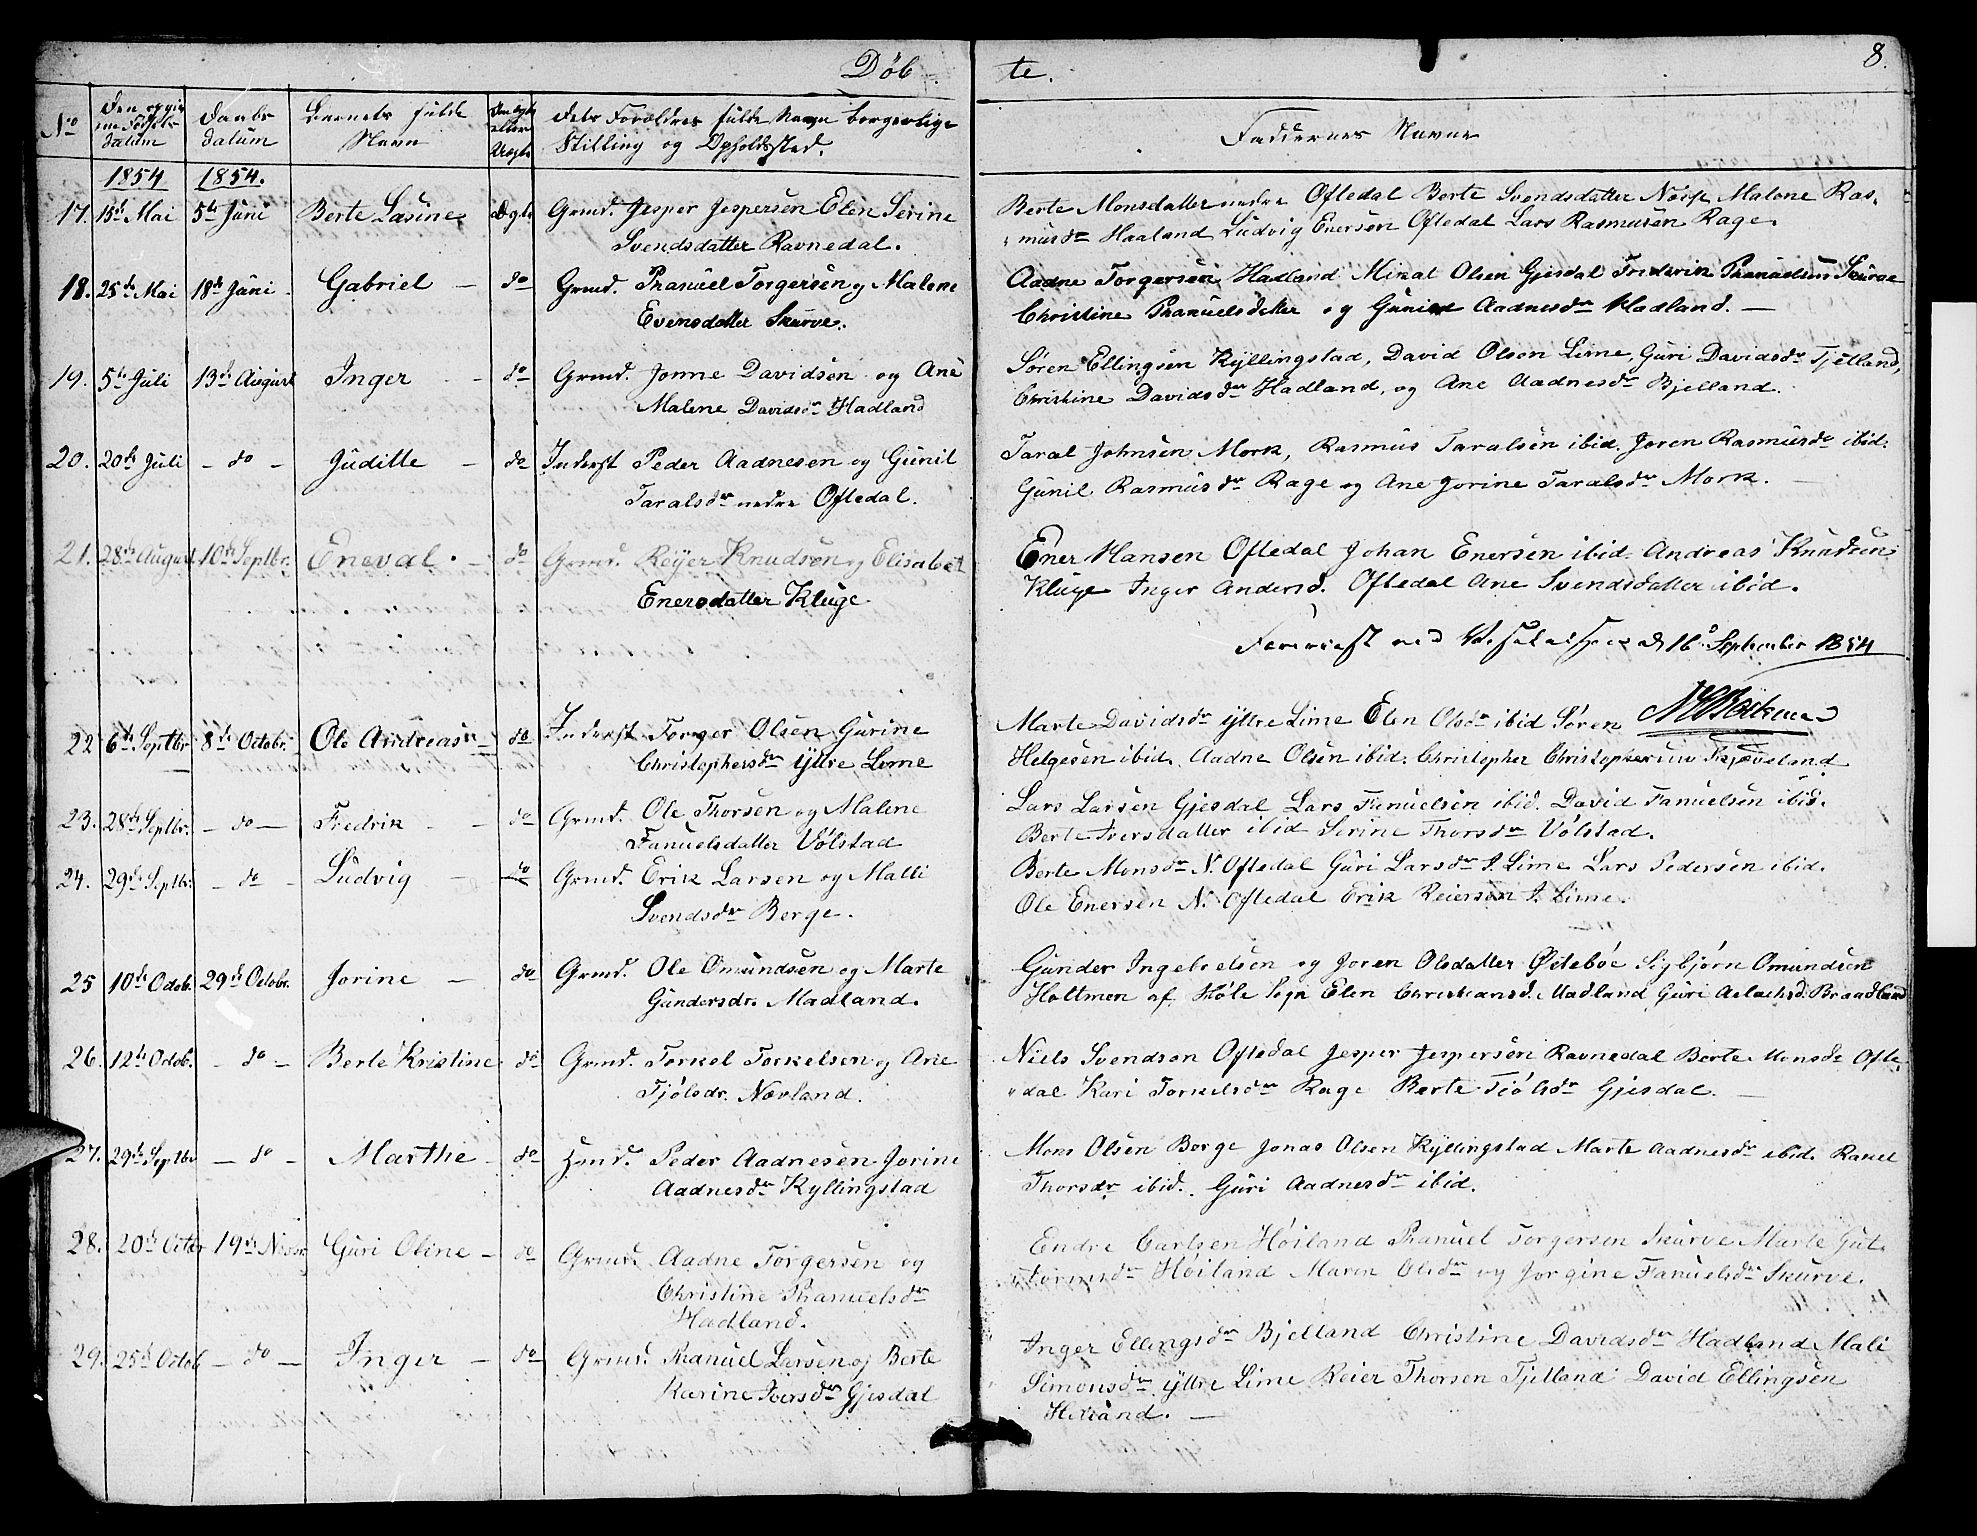 Døb te. 8.
No Den og   Føds datum Daabs datum Barnets fulde Navn   eller   Dets Forældres fulde Navn borgerlige Stilling og Opholdssted. Faddernes Navne
1854 1854.
17. 15de Mai 5te Juni Berte Lasine Ægte Grmd. Jesper Jespersen Elen Serine
Svendsdatter Ravnedal.
Berte Monsdatter nedre Oftedal Berte Svendsdatter Malene Ras,
musdr Haaland Ludvig Enersen Oftedal Lars Rasmusen Rage.
18. 25de Mai 18de Juni Gabriel do Grmd. Phanuel Torgersen og Malene
Evensdatter Skurve.
Aadne Torgersen Hadland Mikal Olsen Gjesdal Frederik Phanuelsen Skurve
Christine Phanuelsdatter og Guniel Aadnesdr Hadland.
19. 5te Juli 13de August Inger do Grmd. Jonne Davidsen og Ane
Malene Davidsdr Hadland
Søren Ellingsen Kyllingstad, David Olsen Lime, Guri Davidsdr Tjelland,
Christine Davidsdtr Hadland, og Ane Aadnesdr Bjelland.
20. 20de Juli - do - Juditte do Inderst Peder Aadnesen og Gunil
Taralsdr nedre Oftedal.
Taral Johnsen Mork, Rasmus Taralsen ibid. Joren Rasmusdr ibid.
Gunil Rasmusdr Rage og Ane Jorine Taralsdr Mork.
21. 28de August 10de Septbr. Eneval do Grmd. Reyer Knudsen og Elisabet
Enersdatter Kluge
Ener Hansen Oftedal Johan Enersen ibid. Andreas Knudsen
Kluge Inger Andersd. Oftedal Ane Svendsdatter ibid.
Foreviist ved Visitatsen d 16de September 1854
22 6te Septbr 8de Octobr. Ole Andreas do Inderst Torger Olsen Gurine
Christophersdr Yttre Lime
Marte Davidsdr Yttre Lime Elen Olsdr ibid Søren
Helgesen ibid. Aadne Olsen ibid. Christopher Christophersen Skjæveland
23. 28de Septbr. - do - Fredrik do Grmd. Ole Thorsen og Malene
Fanuelsdatter Vølstad
Lars Larsen Gjesdal Lars Fanuelsen ibid. David Fanuelsen ibid.
Berte Iversdatter ibid Serine Thorsdr Vølstad.
24. 29de Septbr. - do - Ludvig do Grmd. Erik Larsen og Malli
Svendsdr Berge.
Berte Monsdr N. Oftedal Guri Larsdr I. Lime Lars Pedersen ibid.
Ole Enersen N. Oftedal Erik Reiersen I. Lime.
25 10de Octob. 29de Octobr. Jorine do Grmd. Ole Omundsen og Marte
Gundersdr. Madland.
Gunder Ingebretsen og Joren Olsdatter Østebøe Sigbjørn Omundsen
Holtmen af Høle Sogn Elen Christiansd. Madland Guri Aslachsd. Braadland
26. 12te Octob. - do - Berte Kristine do Grmd. Torkel Torkelsen og Ane
Tjølsdr. Nærland.
Niels Svendsen Oftedal Jesper Jespersen Ravnedal Berte Monsdr Ofte,
dal Kari Torkelsdr Rage Berte Tjølsdr Gjesdal.
27. 29de Septbr - do - Marthe do Hmd. Peder Aadnesen Jorine
Aadnesdr Kyllingstad
Mons Olsen Berge Jonas Olsen Kyllingstad Marte Aadnesdr ibid. Ranel
Thorsdr ibid. Guri Aadnesdr ibid.
28. 20de Octbr 19de Novbr Guri Oline - do Grmd. Aadne Torgersen og
Christine Phanuelsdr
Hadland.
Endre Carlsen Høiland Phanuel Torgersen Skurve Marte Gut,
tormsdr Høiland Maren Olsdr og Jorgine Fanuelsdr Skurve.
29. 25de Octob - do - Inger - do Grmd. Phanuel Larsen og Berte
Karine Iversdr Gjesdal
Inger Ellingsdr Bjelland Christine Davidsdr Hadland Mali
Simonsdr yttre Lime Reier Thorsen Tjelland David Ellingsen